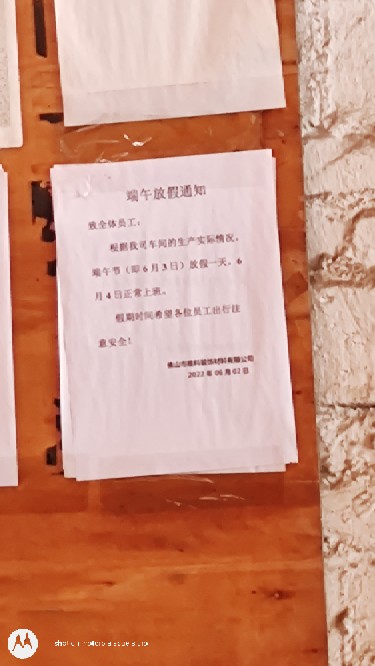 端午放假通知
致全体员工：
根据我司车间的生产实际情况，
端午节（即6月3日）放假一天。6
月4日正常上班。
假期时间希望各位员工出行注
意安全！
2022年06月02日